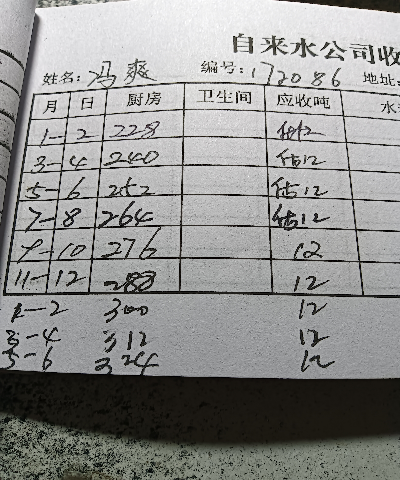 自来水公司收
姓名: 冯爽 编号: 172086 地址:
月 日 厨房 卫生间 应收吨 水
1-2 228 估12
3-4 240 估12
5-6 252 估12
7-8 264 估12
9-10 276 12
11-12 288 12
1-2 300 12
3-4 312 12
5-6 324 12